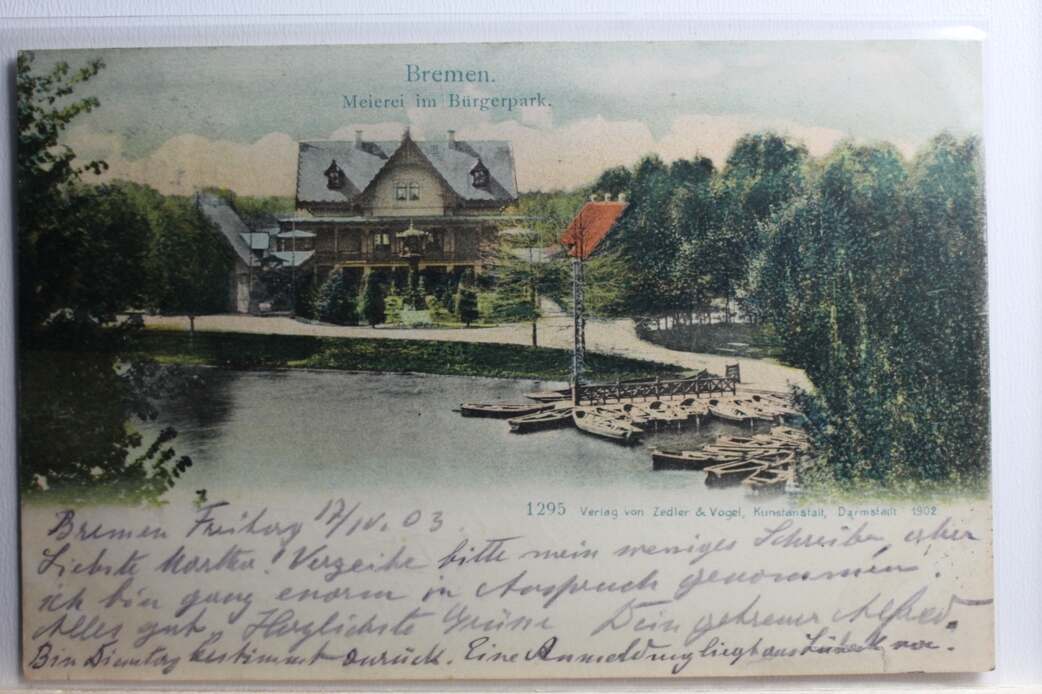 Bremen.
Meierei im Bürgerpark.
1295 Verlag von Zedler & Vogel, Kunstanstalt, Darmstadt 1902
Bremen Freitag 17/IV. 03.
Liebste Martha! Verzeihe bitte mein weniges Schreiben, aber
ich bin ganz enorm in Anspruch genommen.
Alles gut, Herzlichste Grüsse Dein getreuer Alfred.
Bin Dienstag bestimmt zurück. Eine Anmeldung liegt aus Lübeck vor.